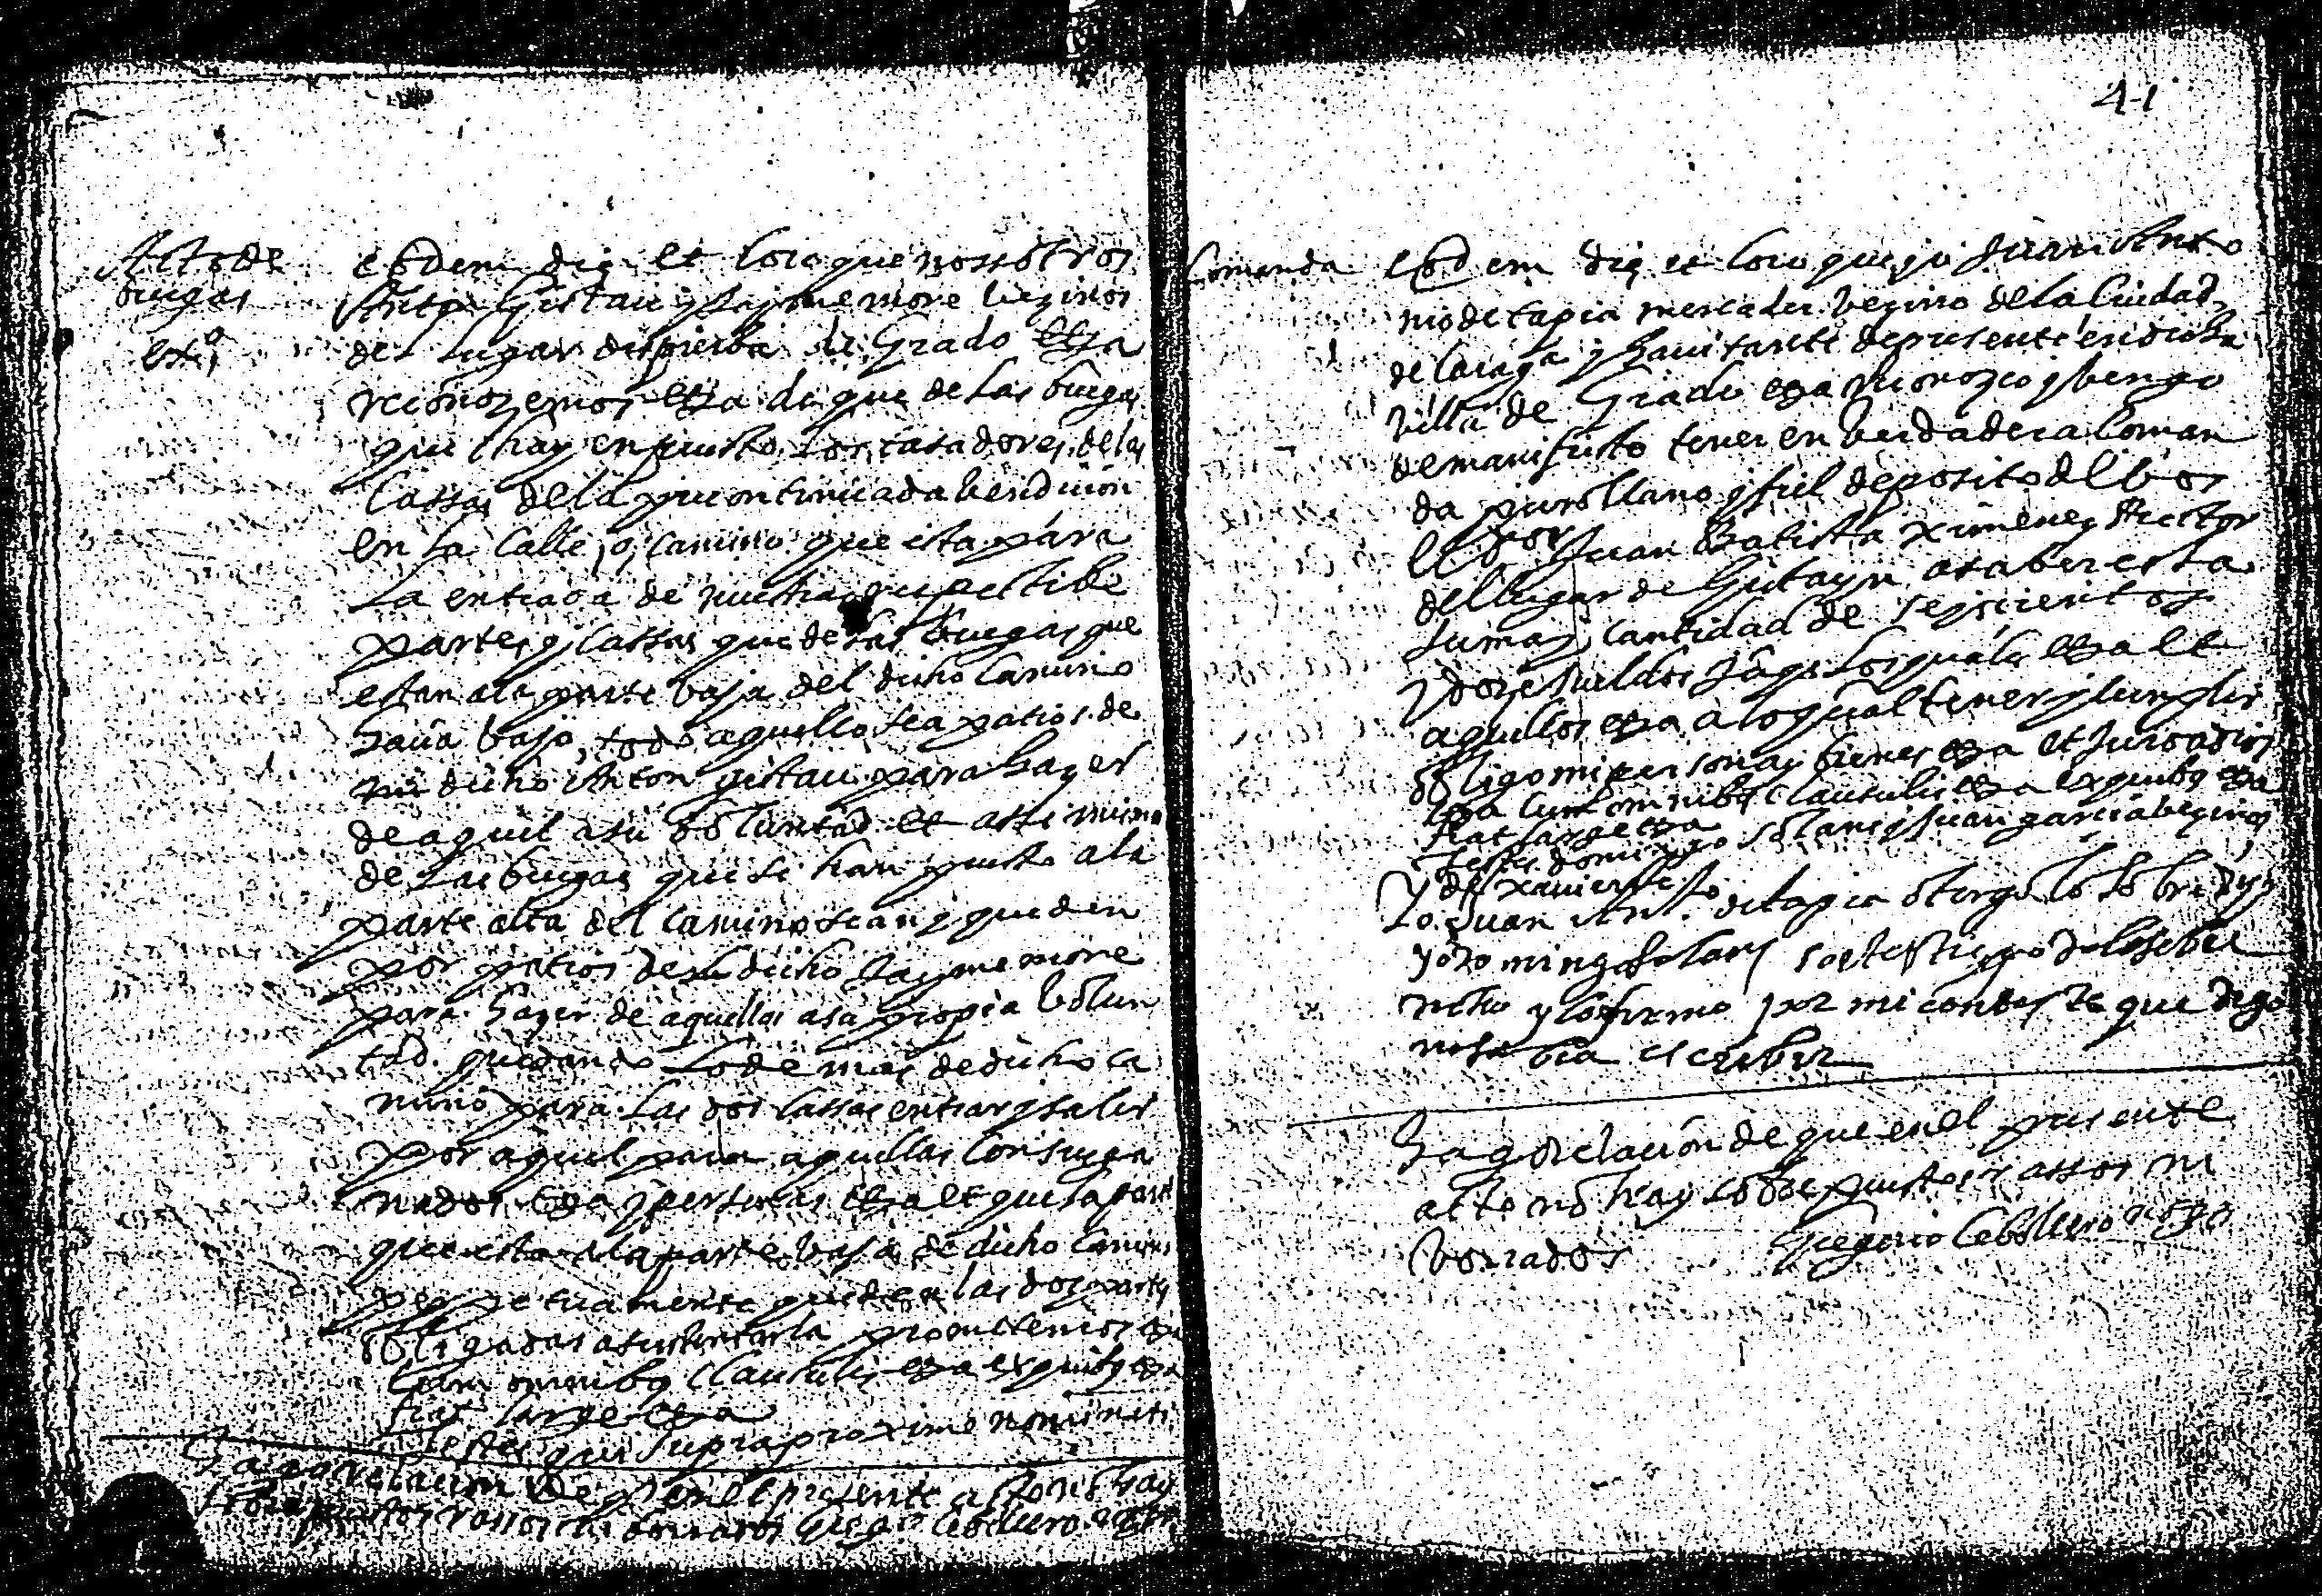 Acto de
buegas
ext.o
eodem die et loco que nosotros
Anton Gistau y Jayme more vezinos
del lugar de de Grado etza
reconozemos etza di que de las buegas
que hay en puesto los tasadores de las
Cassas de la precontinuada bendicion
en la Calle o camino que esta para
La entrada de nuestras respectibe
partes y Cassas que de las buegas que
estan a la parte baja del dicho Camino
hacia bajo, todo aquello sea patios de
mi dicho Anton gistau para hazer
de aquel a su boluntad et assi mismo
de las buegas que se han puesto a la
parte alta del Camino sean y queden
por patios del dicho Jayme more
para hazer de aquellos a su propia bolun
tad. quedando lo de mas de dicho ca
mino para las dos Cassas entrar y salir
por aquel para aquellas con sus ga
nados etza y personas etza et que la pared
que esta a la parte baja de dicho Camino
perpetuamente queden las dos partes
obligadas a sustentarla prometemos etza
Cum omnibus Clausulis etza ex quibus etza
fiat large etza
Testes qui supra proxime nominati
Hago relacion de q en el presente acto no hay
sobrepuestos rassos ni borrados Gregorio Cebollero nott.o
41
Comanda
eodem die et loco que yo Juan Anto
nio de tapia mercader vezino de la Ciudad
de Carag.a y havitante de presente en dicha
villa de Grado etza reconozco y bengo
de manifiesto tener en berdadera Coman
da puro llano y fiel deposito del bos
el Juan Batista Ximenez Rector
del lugar de a saber es la
suma y Cantidad de seyscientos
y doze sueldos Jaqs los quales etza et
aquellos etza a lo qual tener y Cumplir
obligo mi persona y bienes etza et Juro a dios
etza Cum omnibus Clausulis etza ex quibus etza
fiat large etza
Testes domingo solans y Juan garcia vezinos
Yo Juan Ant.o de tapia otorgo lo sobre dicho
yo domingo solans soi testigo de lo sobre
dicho y lo firmo por mi contestes que digo
no sabia escribir
Hago relacion de que en el presente
acto no hay sobrepuestos rassos ni
borrados Gregorio Cebollero nott.o